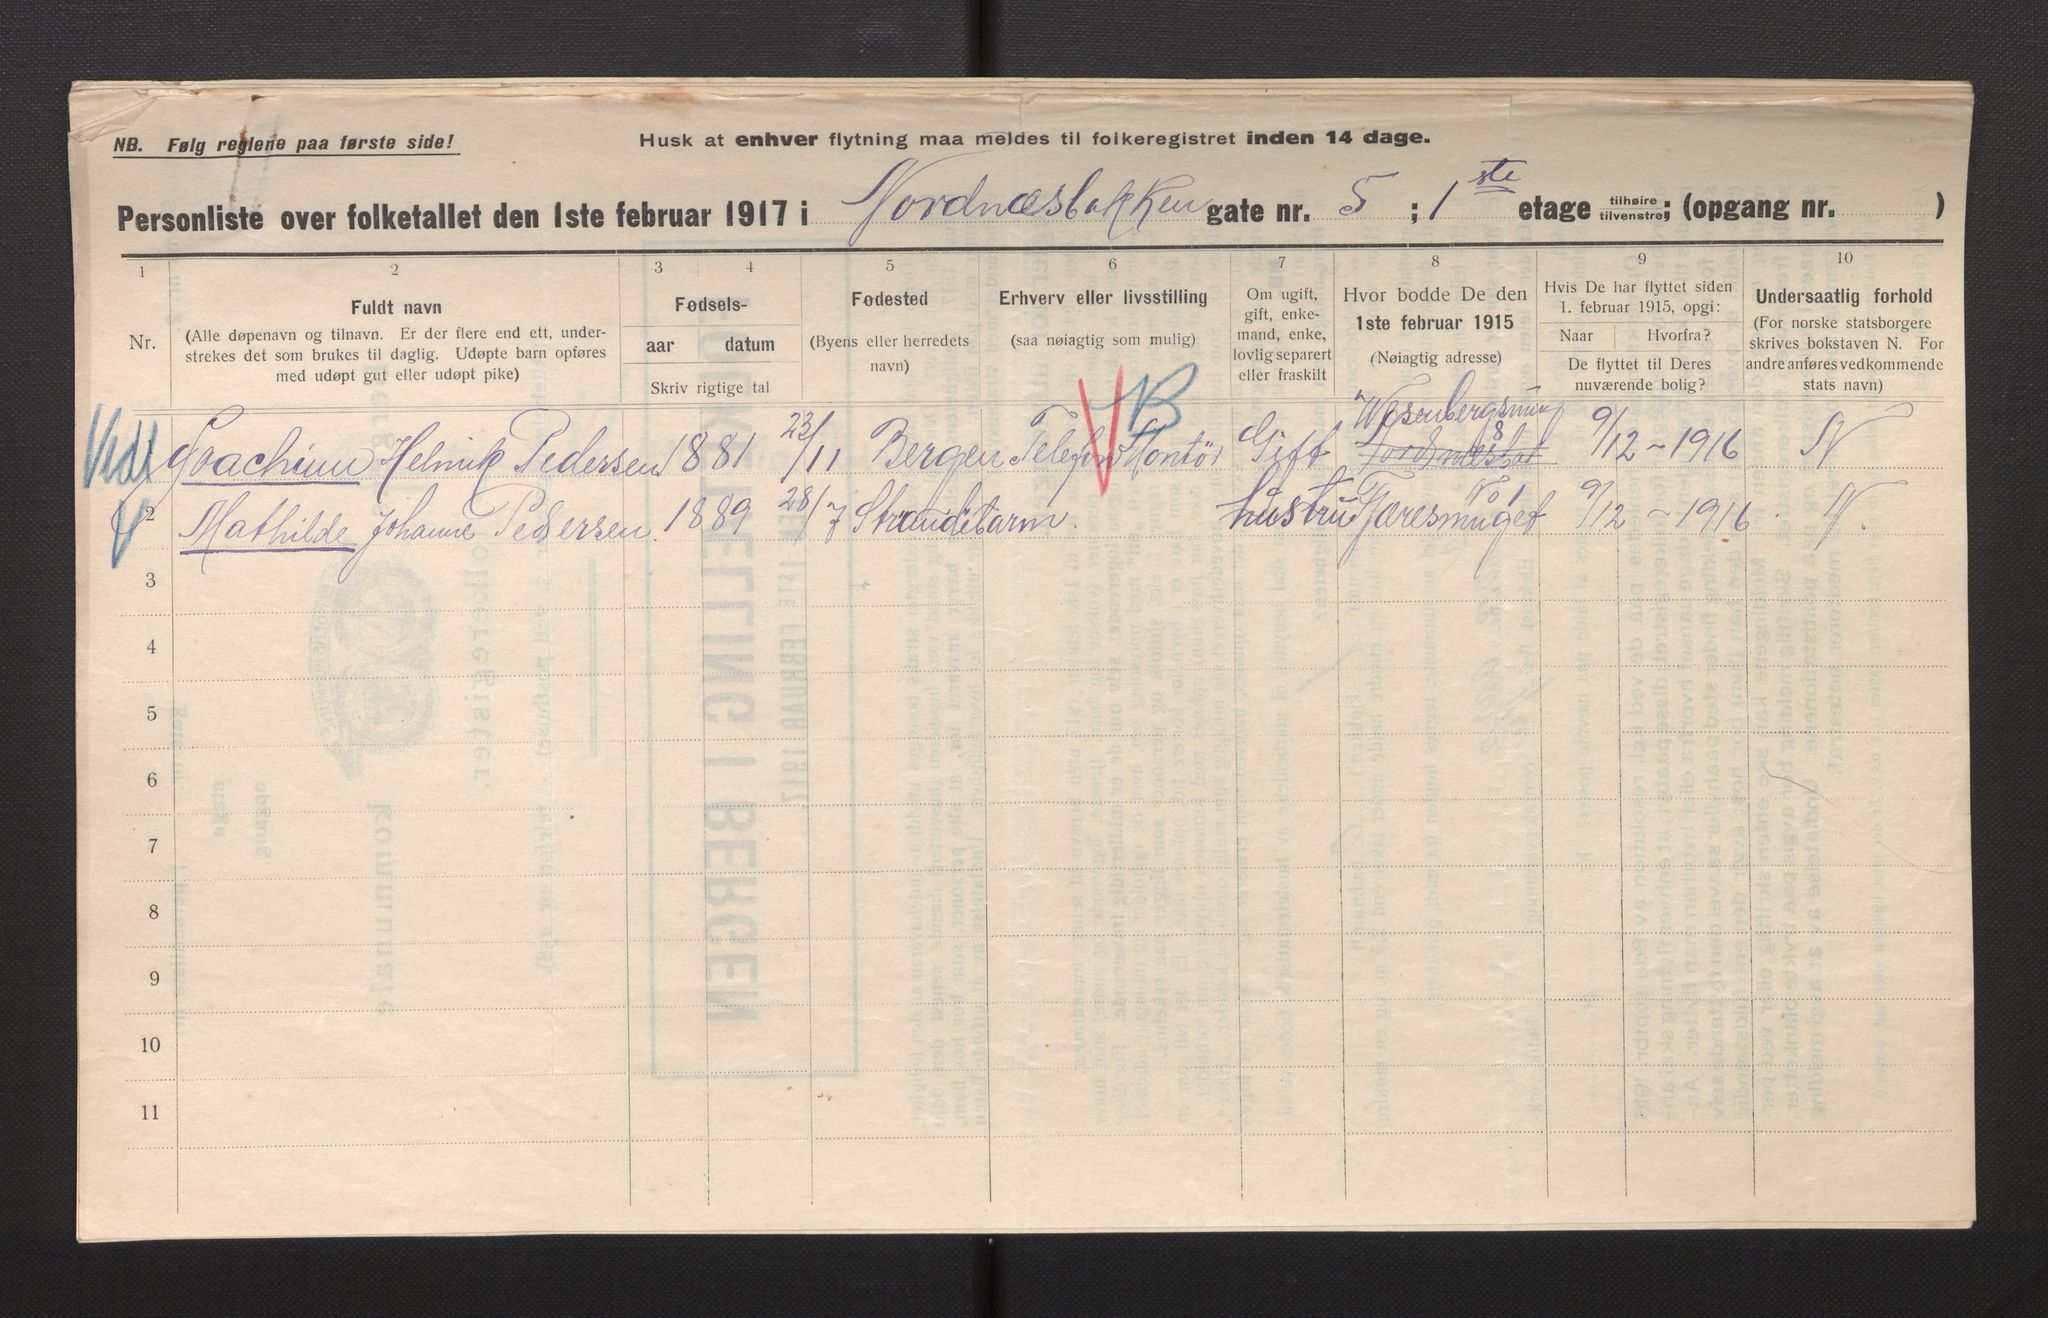 NB. Følg reglene paa første side!
Husk at enhver flytning maa meldes til folkeregistret inden 14 dage.
Personliste over folketallet den 1ste februar 1917 i Nordnæsbakken gate nr. 5 ; 1ste etage tilhøire tilvenstre; (opgang nr. )
1 2 3 4 5 6 7 8 9 10
Nr.
Fuldt navn
(Alle døpenavn og tilnavn. Er der flere end ett, under-
strekes det som brukes til daglig. Udøpte barn opføres
med udøpt gut eller udøpt pike)
Fødsels-
aar datum
Skriv rigtige tal
Fødested
(Byens eller herredets
navn)
Erhverv eller livsstilling
(saa nøiagtig som mulig)
Om ugift,
gift, enke-
mand, enke,
lovlig separert
eller fraskilt
Hvor bodde De den
1ste februar 1915
(Nøiagtig adresse)
Hvis De har flyttet siden
1. februar 1915, opgi:
Naar Hvorfra?
De flyttet til Deres
nuværende bolig?
Undersaatlig forhold
(For norske statsborgere
skrives bokstaven N. For
andre anføres vedkommende
stats navn)
VB
Vedl 1 Joachim Helmik Pedersen 1881 23/11 Bergen Telefon Montör Gift Wesenbergsmug 8 9/12 - 1916 N
V 2 Mathilde Johanne Pedersen. 1889 28/7 Strandebarm. hustru Fjæresmuget No 1 9/12 - 1916. N.
3
4
5
6
7
8
9
10
11